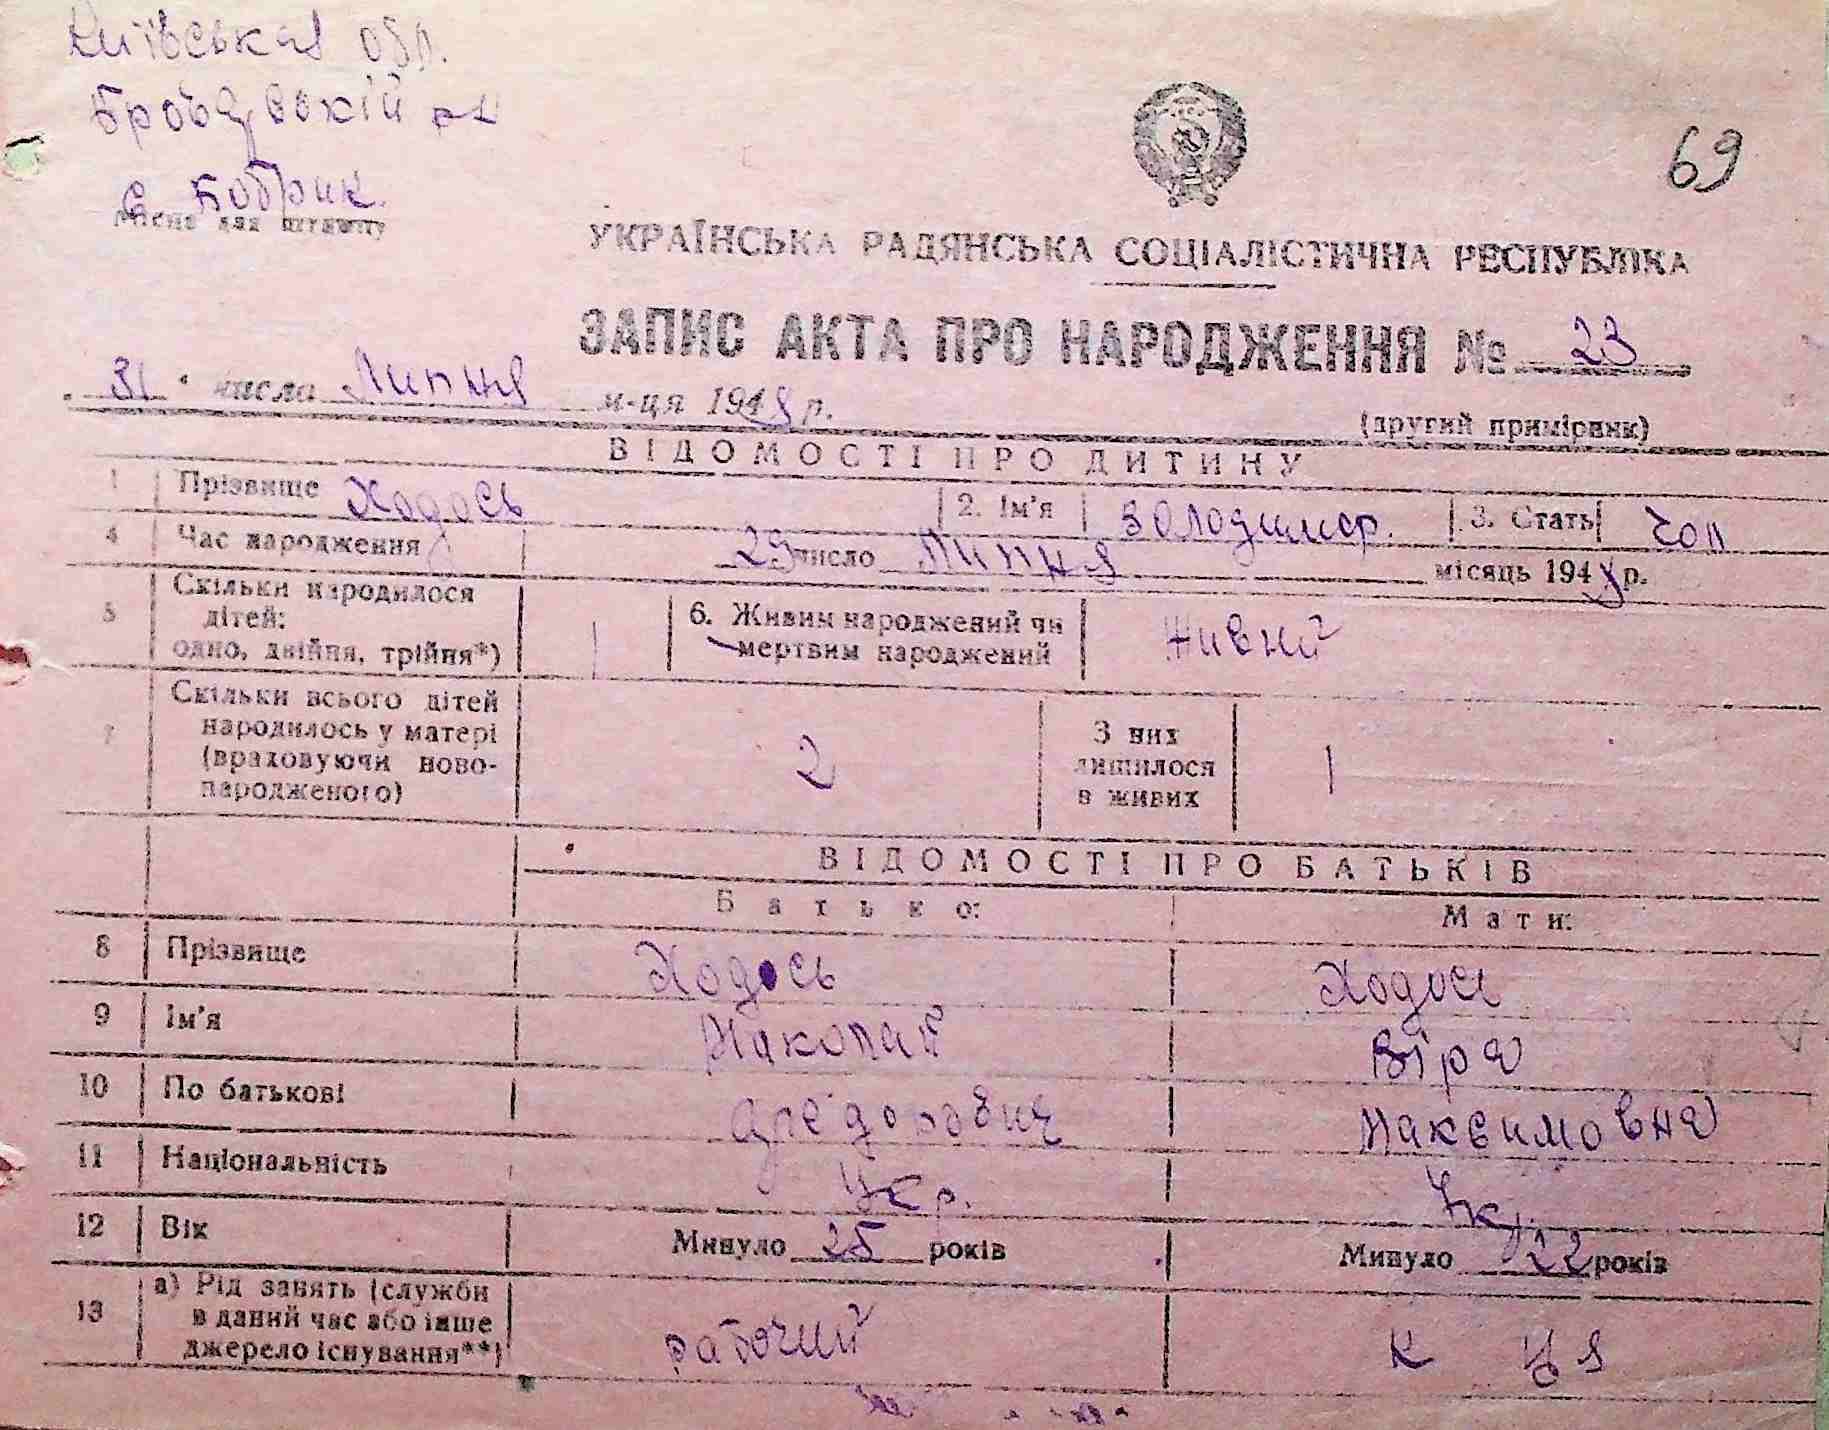 Київська обл.
Броварській р-н
с Бобрик.
Місце для штампу
69
УКРАЇНСЬКА РАДЯНСЬКА СОЦІАЛІСТИЧНА РЕСПУБЛІКА
ЗАПИС АКТА ПРО НАРОДЖЕННЯ № 23
31 числа Липня м-ця 1948 р.
(другий примірник)
ВІДОМОСТІ ПРО ДИТИНУ
1 Прізвище Ходось 2. Ім'я Володимир. 3. Стать чол
4 Час народження 29 число Липня місяць 1948 р.
5 Скільки народилося дітей: одно, двійня, трійня*) 1 6. Живим народжений чи мертвим народжений Живий
7 Скільки всього дітей народилось у матері (враховуючи новонародженого) 2 З них лишилося в живих 1
ВІДОМОСТІ ПРО БАТЬКІВ
Батько: Мати:
8 Прізвище Ходось Ходось
9 Ім'я Николай Віра
10 По батькові Максимовна
11 Національність Укр. Укр.
12 Вік Минуло 25 років Минуло 22 років
13 а) Рід занять (служби в даний час або інше джерело існування**) рабочий к